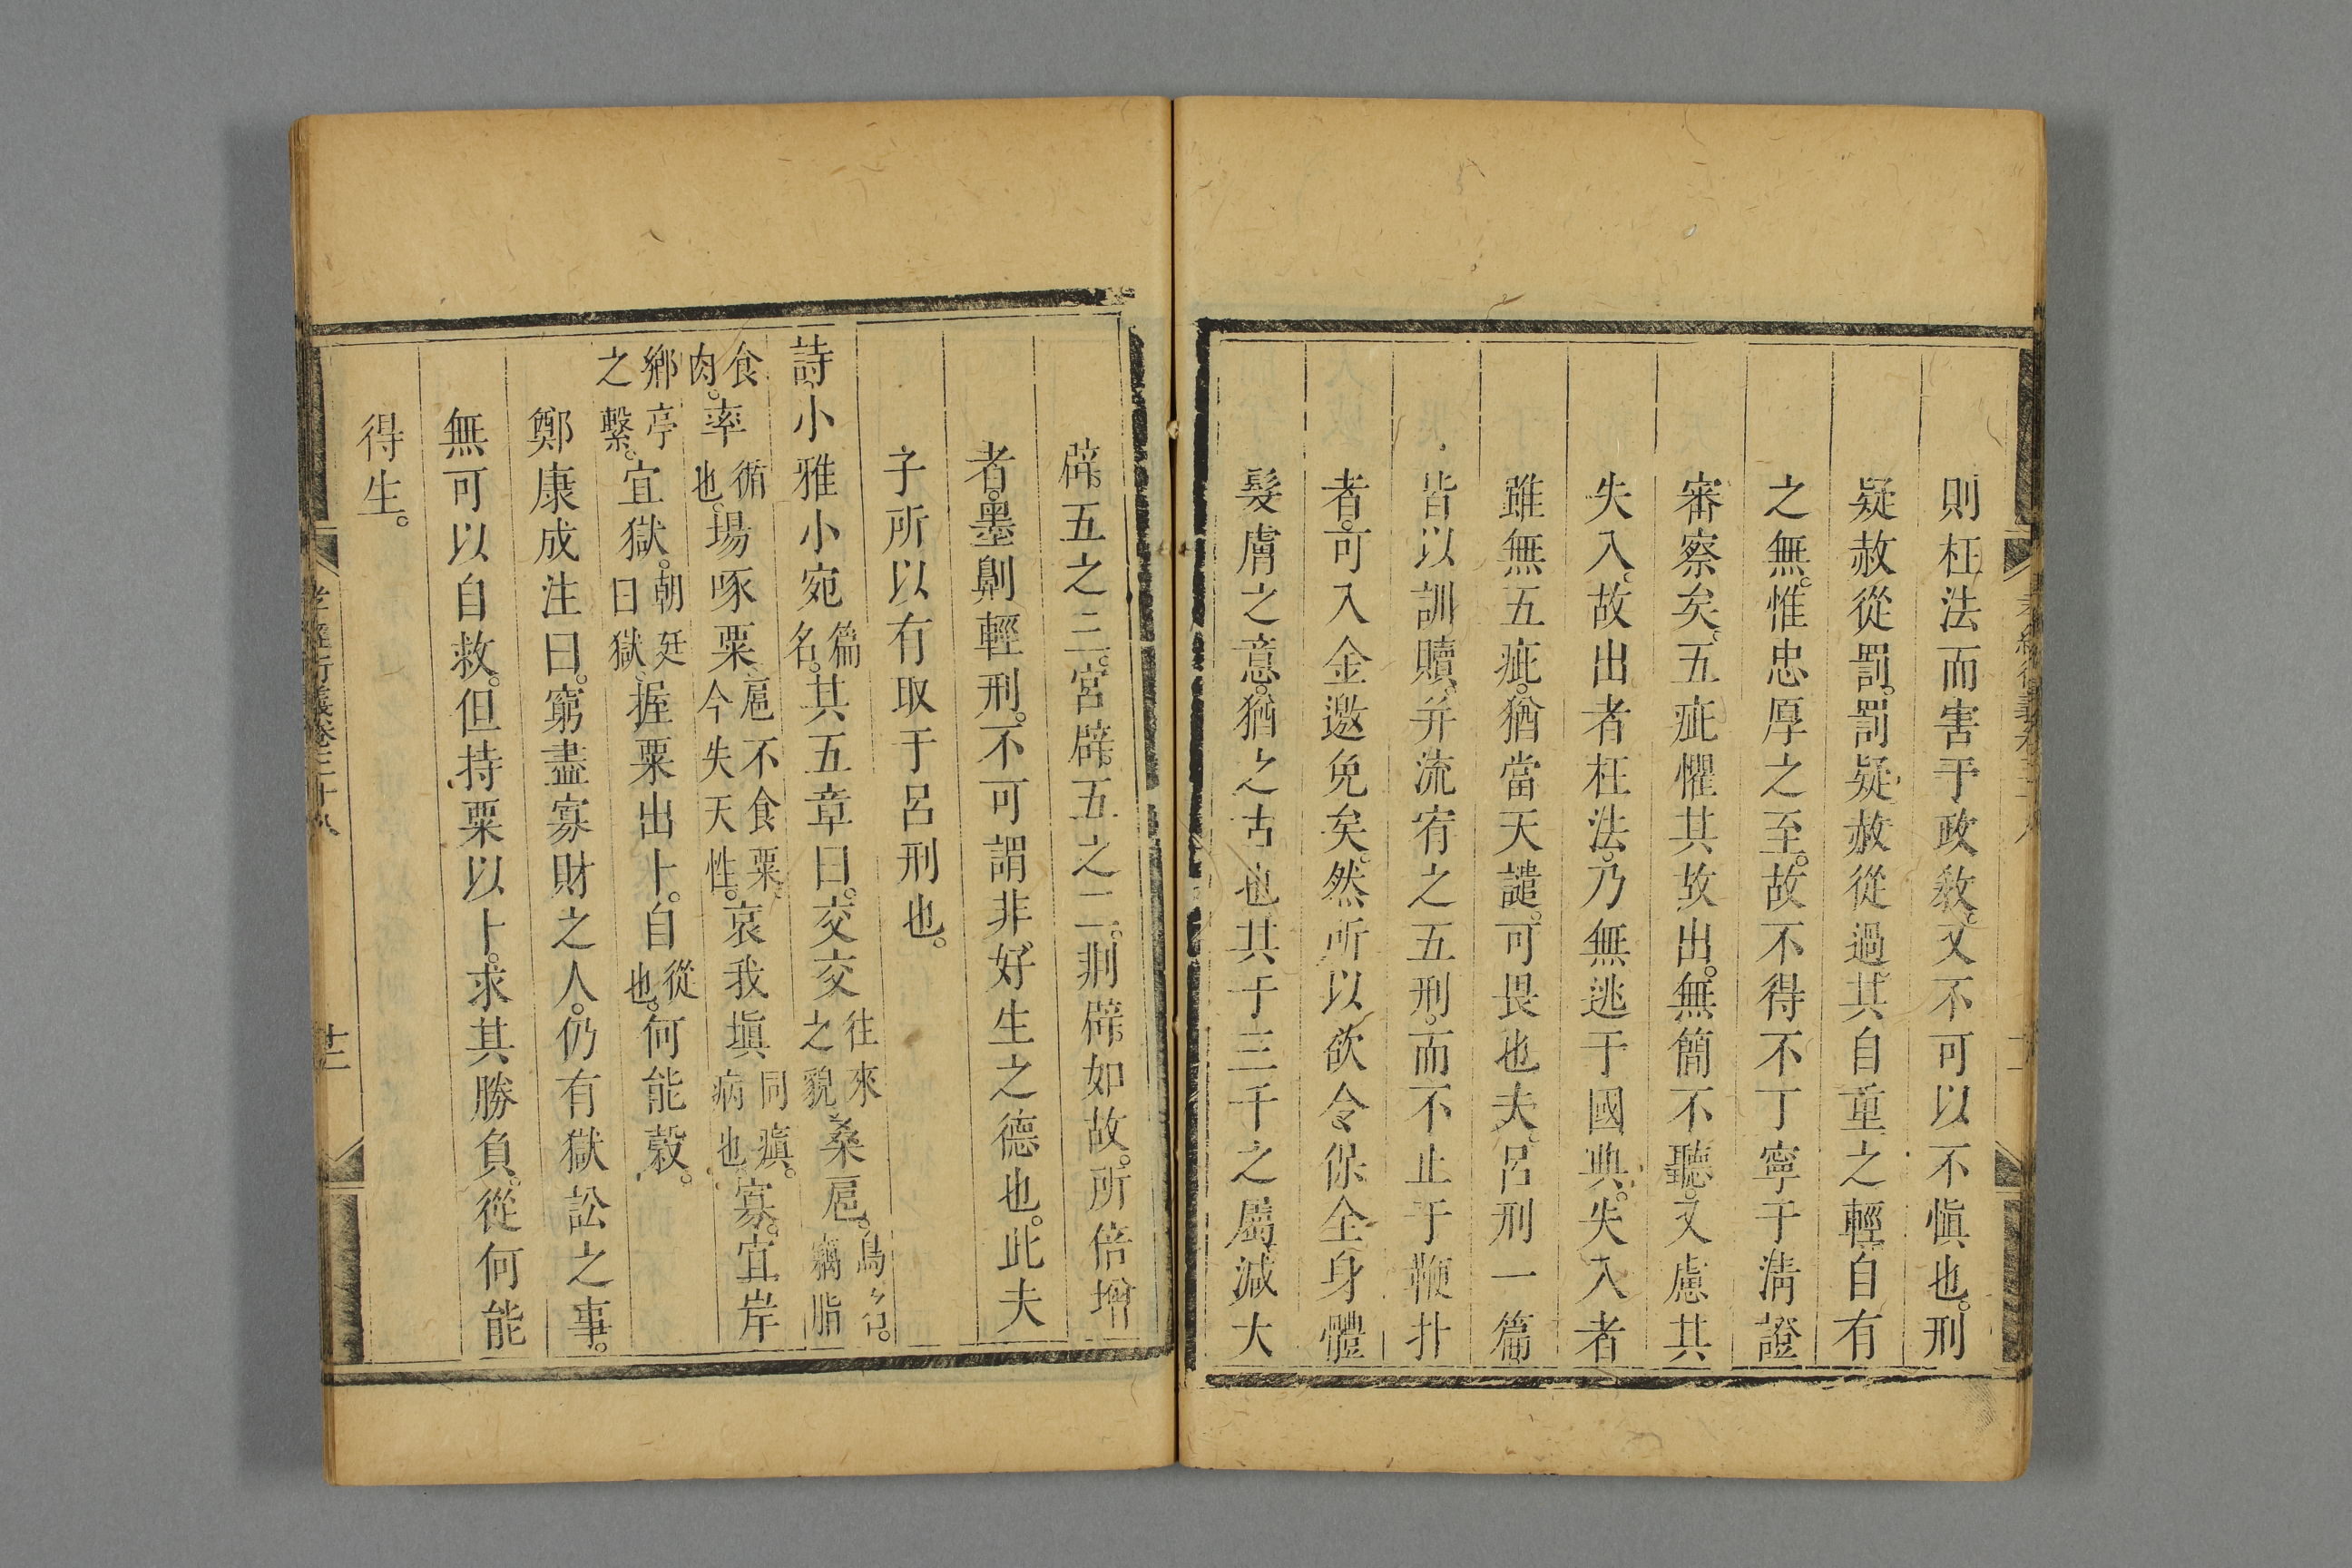 則枉法而害于政敎。又不可以不愼也。刑
疑赦從罰。罰疑赦從過。其自重之輕。自有
之無。惟忠厚之至。故不得不丁寧于淸證
審察矣。五疵懼其故出。無簡不聽。又慮其
失入。故出者枉法。乃無逃于國典。失入者
雖無五疵。猶當天譴。可畏也夫。呂刑一篇
皆以訓贖。幷流宥之五刑。而不止于鞭扑
者。可入金邀免矣。然所以欲令保全身體
髮膚之意。猶之古也。其于三千之屬。減大
辟五之三。宮辟五之二。剕辟如故。所倍增
者。墨劓輕刑。不可謂非好生之德也。此夫
子所以有取于呂刑也。
詩小雅小宛篇名。其五章曰。交交往來之貌桑扈。鳥名。竊脂
食肉。率循也。場啄粟。扈不食粟。今失天性。哀我塡同瘨。病也寡。宜岸
鄉亭之繫。宜獄。朝廷曰獄。握粟出卜。自從也。何能穀。
鄭康成注曰。窮盡寡財之人。仍有獄訟之事。
無可以自救。但持粟以卜。求其勝負。從何能
得生。
孝經衍義卷三十八
廿二